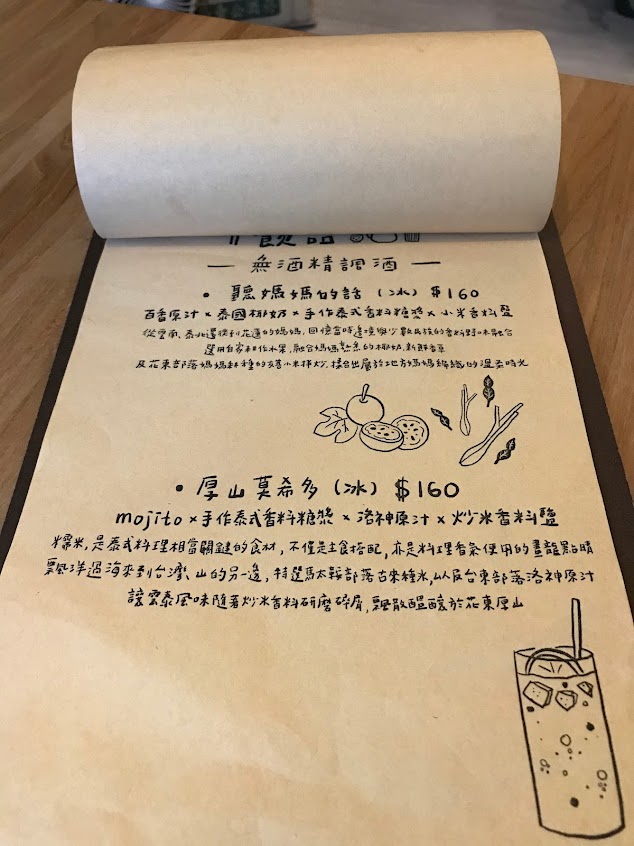 飲品
— 無酒精調酒 —
• 聽媽媽的話 (冰) $160
百香原汁 x 泰國椰奶 x 手作泰式香料糖漿 x 小米香料鹽
從雲南、泰北遷徙到花蓮的媽媽,回憶當時邊境與少數民族的香料野味融合
選用自家耕作水果,融合媽媽熟悉的椰奶、新鮮香草
及花東部落媽媽耕種的小米拌炒,揉合出屬於地方媽媽編織的溫柔時光
• 厚山莫希多 (冰) $160
mojito x 手作泰式香料糖漿 x 洛神原汁 x 炒米香料鹽
糯米,是泰式料理相當關鍵的食材,不僅是主食搭配,亦是料理香氣使用的畫龍點睛
飄洋過海來到台灣、山的另一邊,特選馬太鞍部落古來種米,以及台東部落洛神原汁
讓雲泰風味隨著炒米香料研磨碎屑,飄散醞釀於花東厚山